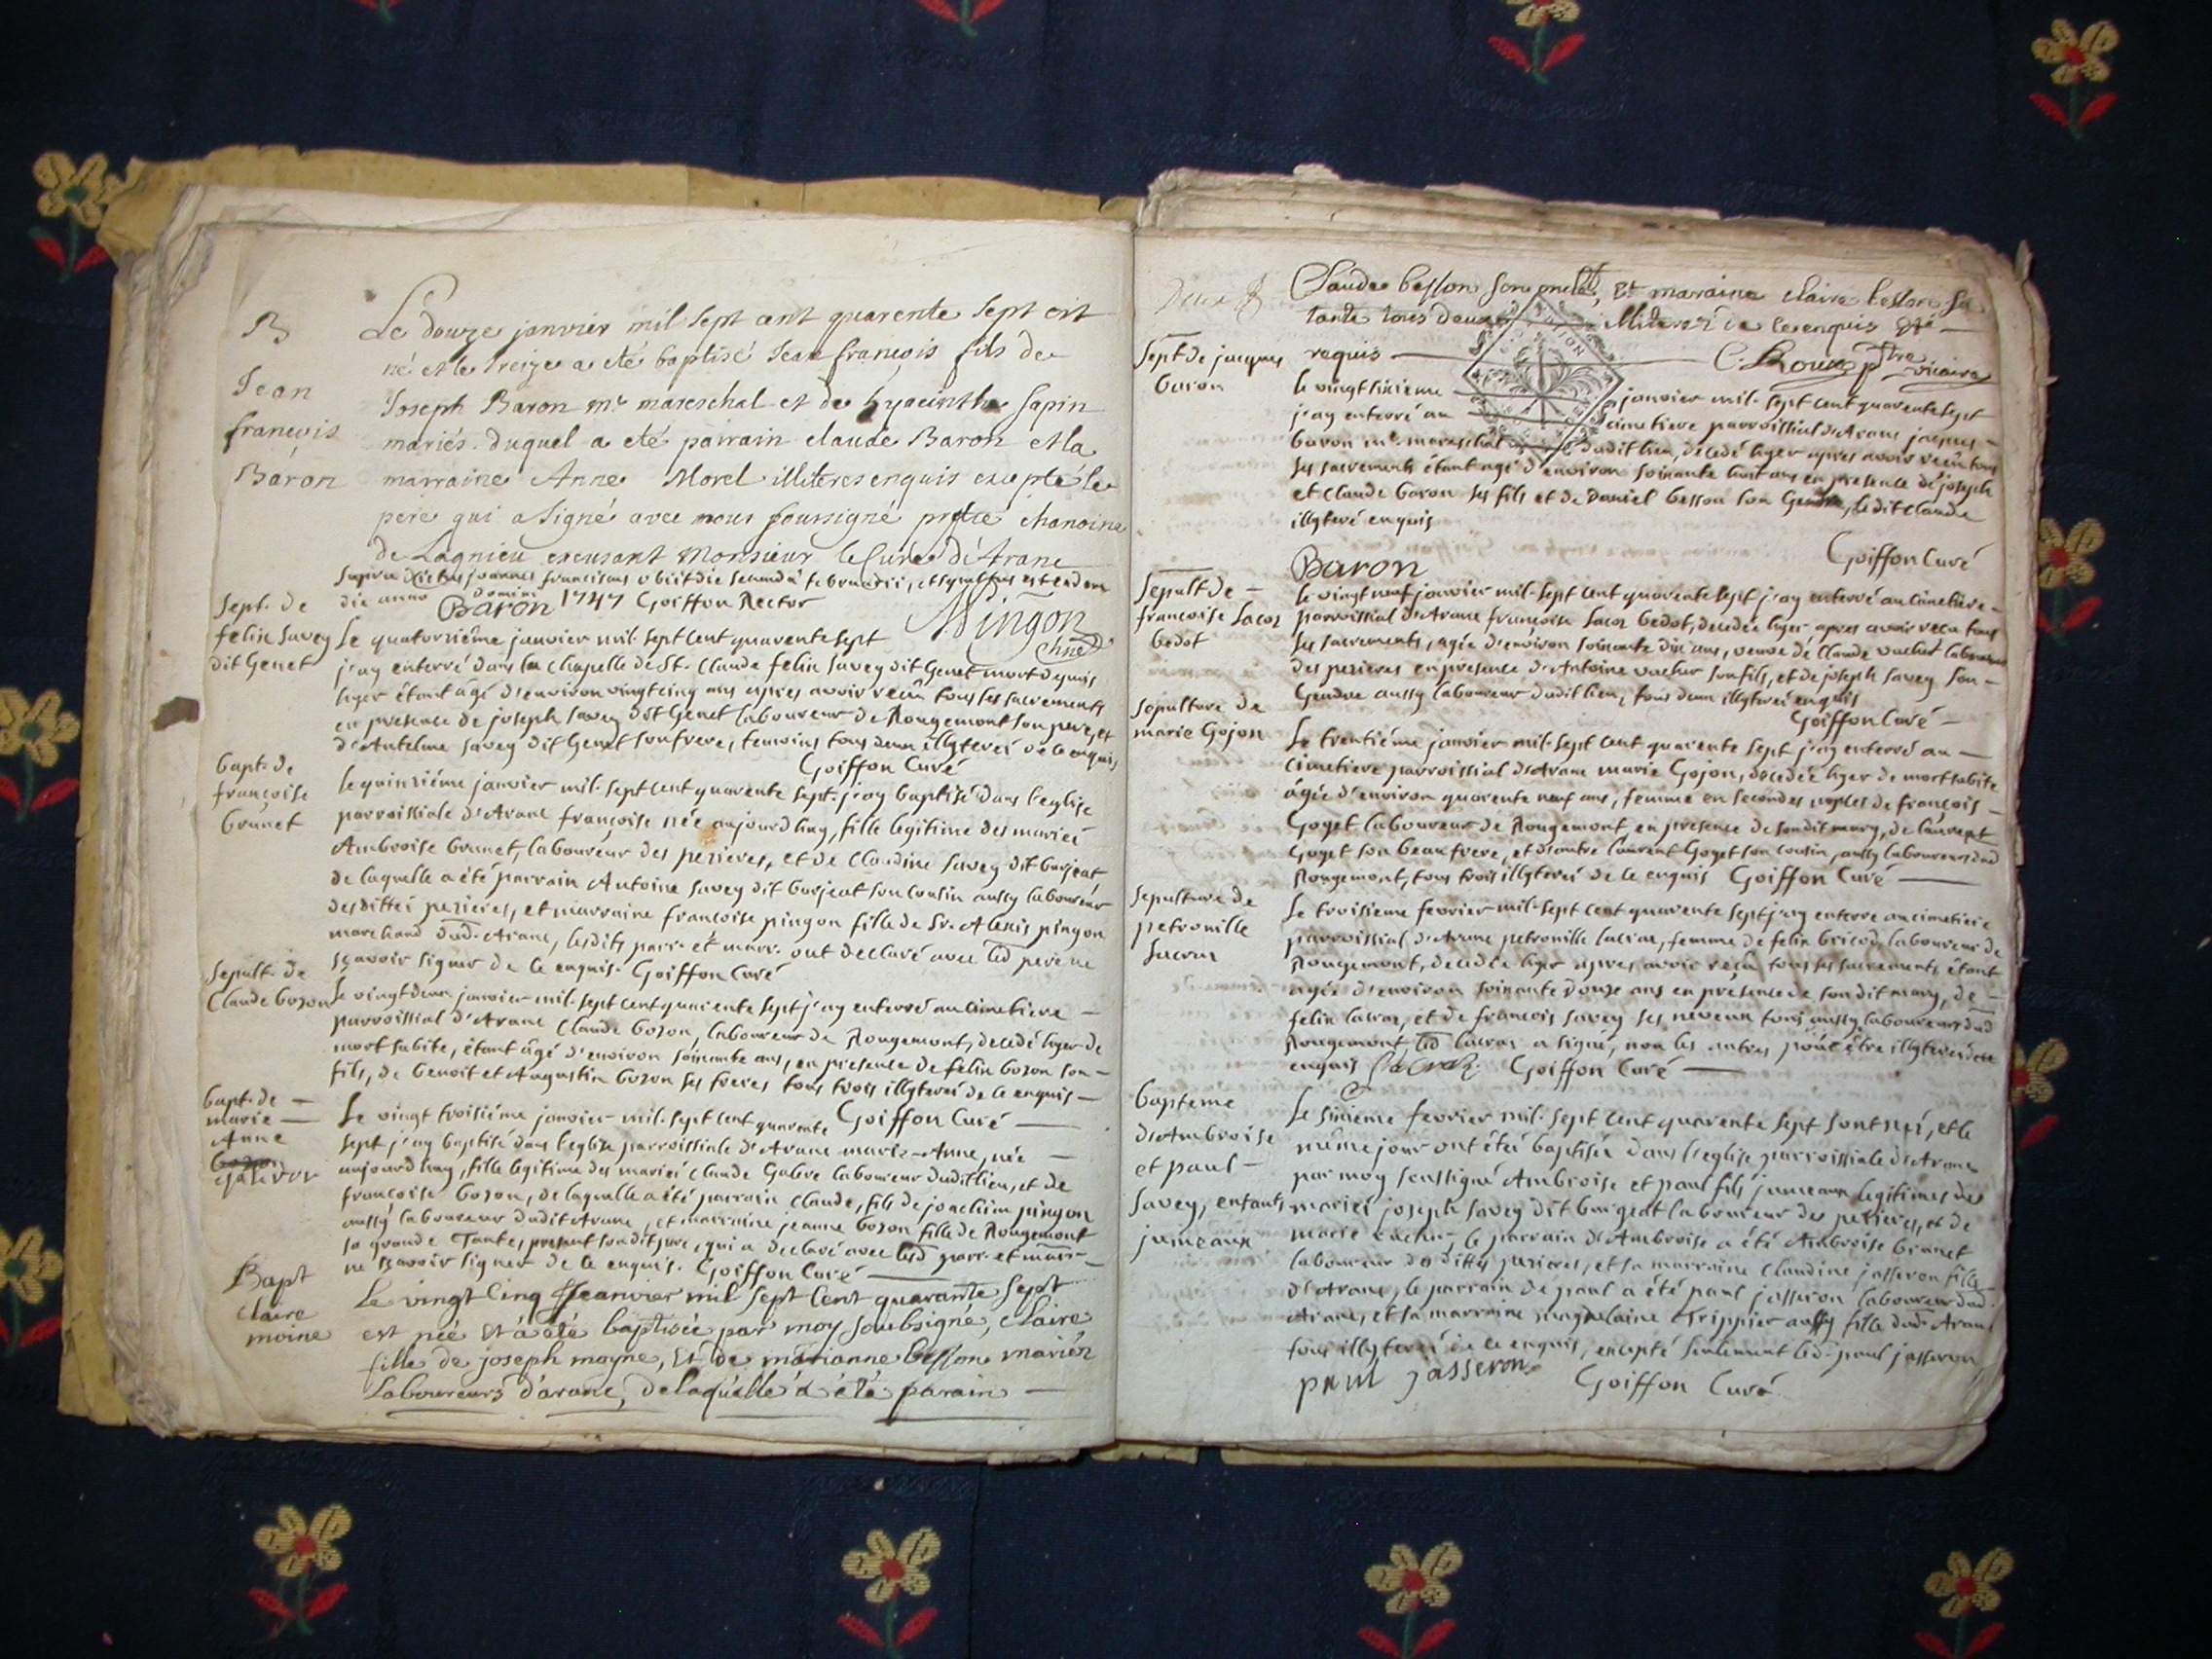 B
Jean
françois
Baron
Le douze janvier mil sept cent quarente sept est
né et le treize a eté baptisé Jean françois fils de
Joseph Baron me mareschal et de hyacinthe sapin
mariés. duquel a eté parrain claude Baron et la
marraine Anne Morel illiteres enquis excepté le
pere qui a signé avec nous soussigné prêtre chanoine
de Lagnieu excusant Monsieur le Curé d'Arane
supra dictus joannes franciscus obiit die secunda februarii, et sepultus est eadem
die anno domini 1747 Goiffon Rector
Baron
Mingon
chne
Sept. de
felix savey
dit Genet
Le quatorziéme janvier mil-sept cent quarente sept
j'ay enterré dans la chapelle de St. Claude felix savey dit Genet mort depuis
hyer étant âgé d'environ vingt cinq ans apres avoir reçû tous ses sacrements
en presence de joseph savey dit Genet laboureur de Rougemont son pere, et
d'Antelme savey dit Genet son frere, temoins tous deux illyterés de ce enquis
Goiffon Curé
bapt. de
françoise
brunet
le quinziéme janvier mil-sept cent quarente sept j'ay baptisé dans l'eglise
parroissiale d'Arane françoise née aujourd'huy, fille legitime des mariés
Ambroise brunet, laboureur des perieres, et de Claudine savey dit burjeat
de laquelle a été parrain Antoine savey dit burjeat son cousin aussy laboureur
desdittes perieres, et marraine françoise pingon fille de Sr. Alexis pingon
marchand dud. Arane, lesdits parr. et marr. ont declaré avec led pere ne
sçavoir signer de ce enquis. Goiffon Curé
Sepult. de
Claude bozon
Le vingt deux janvier mil-sept cent quarente sept j'ay enterré au cimetiere
parroissial d'Arane Claude bozon, laboureur de Rougemont, decedé hyer de
mort subite, étant âgé d'environ soixante ans, en presence de felix bozon son
fils, de benoit et Augustin bozon ses freres tous trois illyterés de ce enquis
Goiffon Curé
bapt. de
marie
Anne
Le vingt troisiéme janvier mil-sept cent quarente
sept j'ay baptisé dans l'eglise parroissiale d'Arane marie-Anne, née
aujourd'huy, fille legitime des mariés Claude Galere laboureur dudit lieu, et de
françoise bozon, de laquelle a été parrain Claude, fils de joachim pingon
aussy laboureur dudit Arane, et marraine jeanne bozon fille de Rougemont
sa grande Tante, present son dit pere, qui a declaré avec lesd parr. et marr.
ne sçavoir signer de ce enquis. Goiffon Curé
Bapt
claire
moine
Le vingt Cinq Jeanvier mil sept Cent quarante sept
est née et a été baptisée par moy soubsigné, claire
fille de joseph moyne, Et de marianne besson mariés
Laboureurs d'arane, de laquelle a été parain
Claude besson son oncle, Et maraine claire besson sa
tante tous deux illiteréz de ce enquis Et
requis
C. Roux ptre vicaire
Sept de jacques
baron
le vingt sixieme janvier mil-sept cent quarente sept
j'ay enterré au cimetiere parroissial d'Arane jacques
baron me mareschal dudit lieu, decedé hyer apres avoir reçû tous
ses sacrements étant agé d'environ soixante huit ans en presence de joseph
et Claude baron ses fils et de Daniel besson son Gendre, ledit Claude
illyteré enquis
Goiffon Curé
Baron
Sepult de
francoise Lacoz
bedot
le vingt neuf janvier mil-sept cent quarente sept j'ay enterré au cimetiere
parroissial d'Arane françoise Lacoz bedot, decedée hyer apres avoir reçu tous
ses sacrements, agée d'environ soixante dix ans, veuve de Claude vacher laboureur
des perieres en presence d'Antoine vacher son fils, et de joseph savey son
Gendre aussy laboureur dudit lieu, tous deux illyterés enquis
Goiffon Curé
sepulture de
marie Gojon
Le trentiéme janvier mil-sept cent quarente sept j'ay enterré au
cimetiere parroissial d'Arane marie Gojon, decedée hyer de mort subite
âgée d'environ quarente neuf ans, femme en secondes noples de françois
Goyet laboureur de Rougemont, en presence de son dit mary, de laurent
Goyet son beaufrere, et d'autre laurent Goyet son cousin, aussy laboureurs dud
Rougemont, tous trois illyterés de ce enquis Goiffon Curé
sepulture de
petronille
Lacraz
Le troisieme fevrier mil-sept cent quarente sept j'ay enterré au cimetiere
parroissial d'Arane petronille lacraz, femme de felix bricod laboureur de
Rougemont, decedée hyer apres avoir reçu tous ses sacrements étant
agée d'environ soixante douze ans en presence de son dit mary, de
felix lacraz, et de françois savey ses neveux tous aussy laboureurs dud
Rougemont, led lacraz a signé, non les autres pour être illyterés de ce
enquis Lacraz. Goiffon Curé
bapteme
d'Ambroise
et paul
savey, enfants
jumeaux
Le sixieme fevrier mil-sept cent quarente sept sont nés, et le
même jour ont étés baptisés dans l'eglise parroissiale d'Arane
par moy soussigné Ambroise et paul fils jumeaux legitimes des
mariés joseph savey dit burgeat laboureur des perieres, et de
marie vacher, le parrain d'Ambroise a été Ambroise brunet
laboureur desdittes perieres, et sa marraine Claudine jasseron fille
d'Arane, le parrain de paul a été paul jasseron laboureur dud.
Arane, et sa marraine magdelaine Trippier aussy fille dud. Arane
tous illyterés de ce enquis, excepté seulement led. paul jasseron
paul jasseron Goiffon Curé